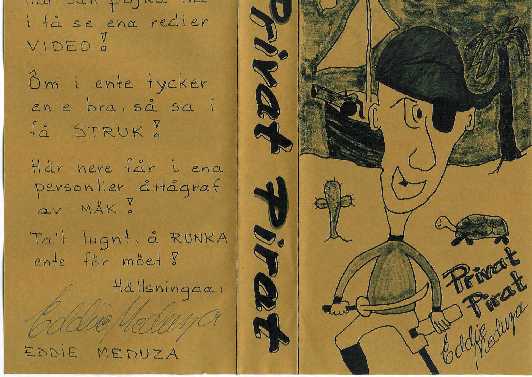 i få se ena redier
VIDEO!
Öm i ente tycker
en e bra, så sa i
få STRUK!
Här nere får i ena
personlier åttågraf
av MÅK!
Ta'i lugnt, å RUNKA
ente för möet!
Hällsningaar
Eddie Meduza
EDDIE MEDUZA
Privat Pirat
Privat
Pirat
Eddie
Meduza